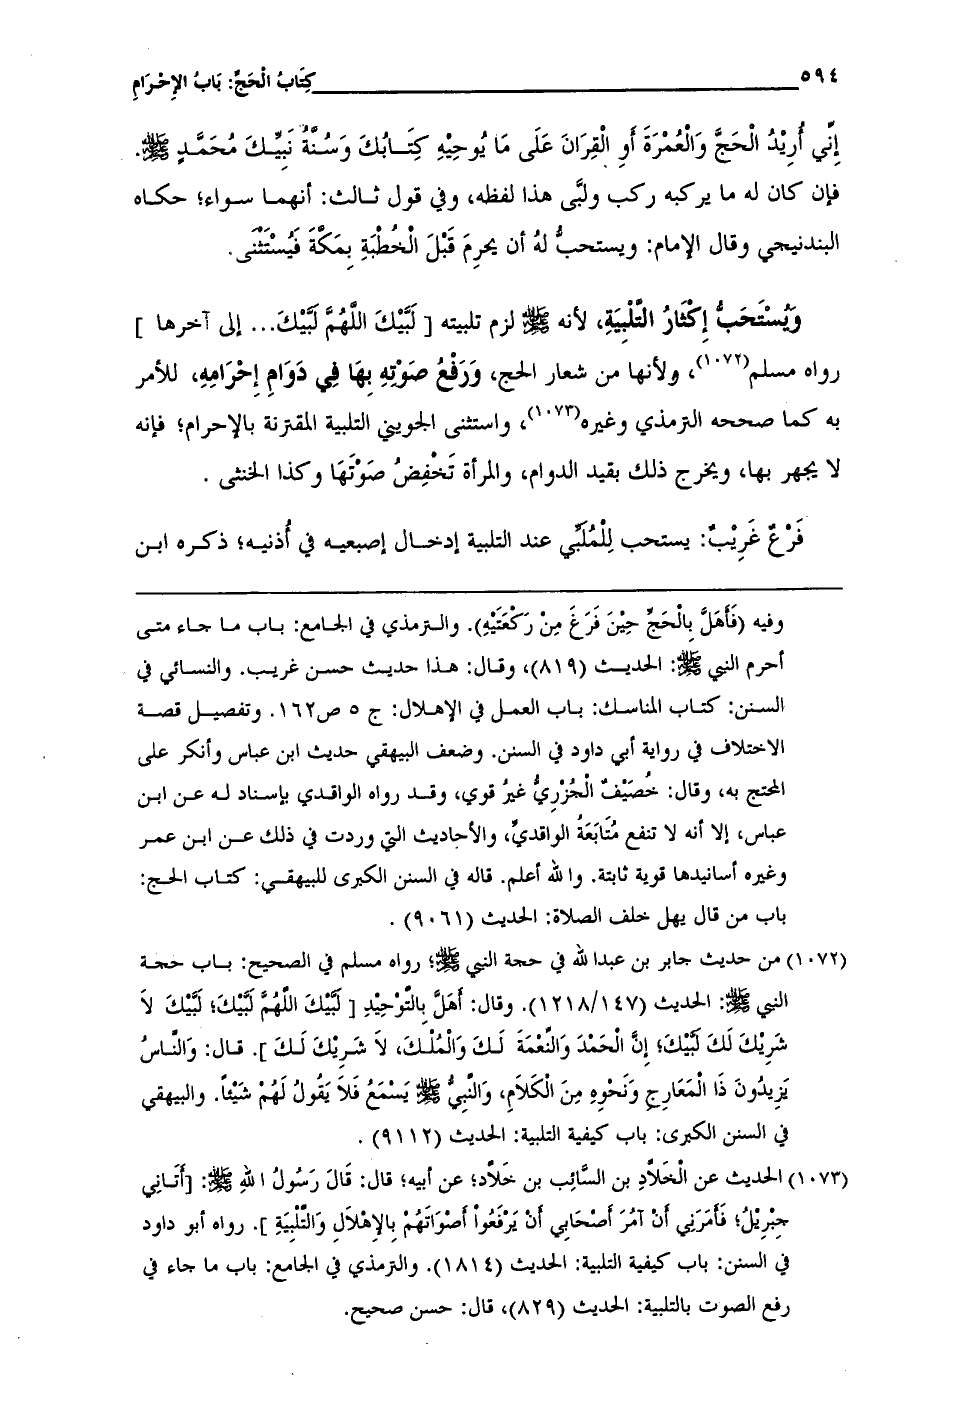 ٥٩٤ كِتَابُ الْحَجِّ: بَابُ الإِحْرَامِ
إِنِّي أُرِيْدُ الْحَجَّ وَالْعُمْرَةَ أَوِ الْقِرَانَ عَلَى مَا يُوحِيْهِ كِتَابُكَ وَسُنَّةُ نَبِيِّكَ مُحَمَّدٍ ﷺ.
فإن كان له ما يركبه ركب ولبَّى هذا لفظه، وفي قول ثالث: أنهما سواء؛ حكاه
البندنيجي وقال الإمام: ويستحبُّ لهُ أن يحرمَ قَبْلَ الْخُطْبَةِ بِمَكَّةَ فَيُسْتَثْنَى.
وَيُسْتَحَبُّ إِكْثَارُ التَّلْبِيَةِ، لأنه ﷺ لزم تلبيته [ لَبَّيْكَ اللَّهُمَّ لَبَّيْكَ... إلى آخرها ]
رواه مسلم(١٠٧٢)، ولأنها من شعار الحج، وَرَفْعُ صَوْتِهِ بِهَا فِي دَوَامِ إِحْرَامِهِ، للأمر
به كما صححه الترمذي وغيره(١٠٧٣)، واستثنى الجويني التلبية المقترنة بالإحرام؛ فإنه
لا يجهر بها، ويخرج ذلك بقيد الدوام، والمرأة تَخْفِضُ صَوْتَهَا وكذا الخنثى .
فَرْعٌ غَرِيْبٌ: يستحب لِلْمُلَبِّي عند التلبية إدخال إصبعيه في أُذنيه؛ ذكره ابن
وفيه (فَأَهَلَّ بِالْحَجِّ حِيْنَ فَرَغَ مِنْ رَكْعَتَيْهِ). والترمذي في الجامع: باب ما جاء متى
أحرم النبي ﷺ: الحديث (٨١٩)، وقال: هذا حديث حسن غريب. والنسائي في
السنن: كتاب المناسك: باب العمل في الإهلال: ج ٥ ص١٦٢. وتفصيل قصة
الاختلاف في رواية أبي داود في السنن. وضعف البيهقي حديث ابن عباس وأنكر على
المحتج به، وقال: خُصَيْفٌ الْجُزْرِيُّ غيرُ قوي، وقد رواه الواقدي بإسناد له عن ابن
عباس، إلا أنه لا تنفع مُتَابَعَةُ الواقديِّ، والأحاديث التي وردت في ذلك عن ابن عمر
وغيره أسانيدها قوية ثابتة. والله أعلم. قاله في السنن الكبرى للبيهقي: كتاب الحج:
باب من قال يهل خلف الصلاة: الحديث (٩٠٦١) .
(١٠٧٢) من حديث جابر بن عبدالله في حجة النبي ﷺ؛ رواه مسلم في الصحيح: باب حجة
النبي ﷺ: الحديث (١٢١٨/١٤٧). وقال: أَهَلَّ بِالتَّوْحِيْدِ [ لَبَّيْكَ اللَّهُمَّ لَبَّيْكَ؛ لَبَّيْكَ لاَ
شَرِيْكَ لَكَ لَبَّيْكَ؛ إِنَّ الْحَمْدَ وَالنِّعْمَةَ لَكَ وَالْمُلْكَ، لاَ شَرِيْكَ لَكَ ]. قال: وَالنَّاسُ
يَزِيدُونَ ذَا الْمَعَارِجِ وَنَحْوِهِ مِنَ الْكَلاَمِ، وَالنَّبِيُّ ﷺ يَسْمَعُ فَلاَ يَقُولُ لَهُمْ شَيْئاً. والبيهقي
في السنن الكبرى: باب كيفية التلبية: الحديث (٩١١٢) .
(١٠٧٣) الحديث عن الْخَلاَّدِ بن السَّائِبِ بن خَلاَّد؛ عن أبيه؛ قال: قَالَ رَسُولُ اللهِ ﷺ: [أَتَانِي
جِبْرِيْلُ؛ فَأَمَرَنِي أَنْ آمُرَ أَصْحَابِي أَنْ يَرْفَعُواْ أَصْوَاتَهُمْ بِالإِهْلاَلِ وَالتَّلْبِيَةِ ]. رواه أبو داود
في السنن: باب كيفية التلبية: الحديث (١٨١٤). والترمذي في الجامع: باب ما جاء في
رفع الصوت بالتلبية: الحديث (٨٢٩)، قال: حسن صحيح.